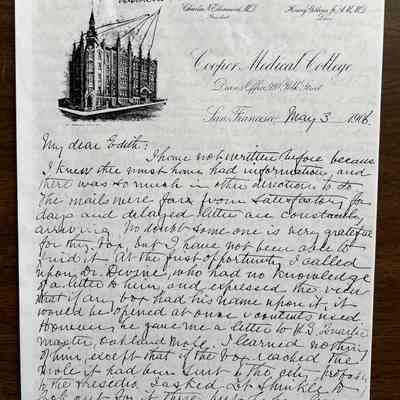 Charles N. Ellinwood, M.D.
President
Henry Gibbons Jr. A.M., M.D.
Dean
Cooper Medical College
Dean's Office 920 Polk Street
San Francisco May 3 1906
My dear Edith:
I have not written before because
I knew thee must have had information, and
there was so much in other directions to do
The mails were far from satisfactory for
days and delayed letters are constantly
arriving. No doubt someone is very grateful
for thy box, but I have not been able to
find it. At the first opportunity I called
upon Dr. Devine, who had no knowledge
of a letter to him, and expressed the view
that if any box had his name upon it, it
would be opened at once & contents used
However, he gave me a letter to U.S. Quarter-
master, Oakland Mole. I learned nothing
of him, except that if the box reached the
Mole it had been sent to the city, probably
to the Presidio. I asked Lt. to
look out for it there